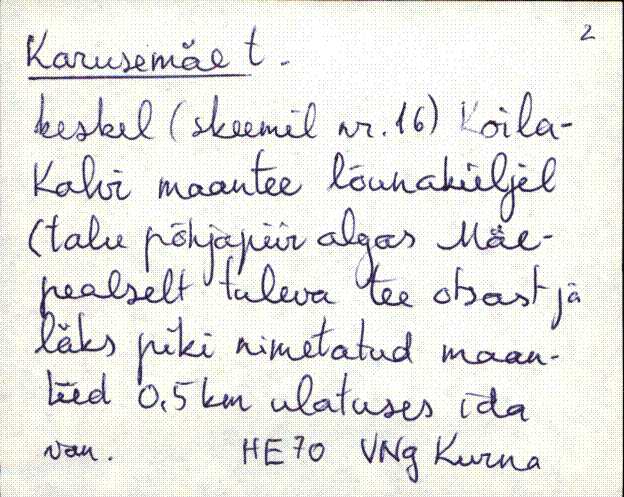 2
Karusemäe t.
keskel (skeemil nr. 16) Koila-
Kalvi maantee lõunaküljel
(talu põhjapiir algas Mäe-
pealselt tuleva tee otsast ja
läks piki nimetatud maan-
teed 0,5 km ulatuses ida
van. HE 70 VNg Kurna